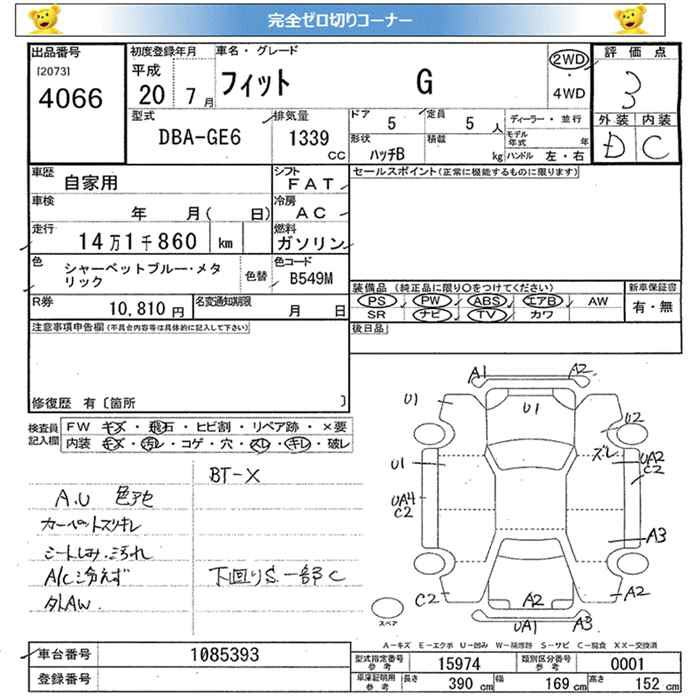 完全ゼロ切りコーナー
出品番号
[2073]
4066
初度登録年月
平成
20 7月
車名・グレード
フィット G
2WD
・
4WD
評価点
3
外装 内装
D C
型式
DBA-GE6
排気量
1339
CC
ドア
5
定員
5 人
形状
ハッチB
積載
kg
ディーラー・並行
モデル年式 年
ハンドル 左・右
車歴
自家用
シフト
FAT
車検
年 月( 日)
冷房
AC
走行
14万1千860 km
燃料
ガソリン
色
シャーベットブルー・メタリック
色替
色コード
B549M
R券
10,810 円
名変通知期限
月 日
セールスポイント(正常に機能するものに限ります)
装備品 (純正品に限り○をつけてください)
PS PW ABS エアB AW
SR ナビ TV カワ
新車保証書
有・無
後日品
注意事項申告欄(不具合内容等は具体的に記入して下さい)
修復歴 有〔箇所 〕
検査員記入欄
FW キズ・飛石・ヒビ割・リペア跡・×要
内装 キズ・汚レ・コゲ・穴・スレ・キレ・破レ
BT-X
A.U 色アセ
カーペットスリキレ
シートしみ・よごれ
A/C冷えず
外AW.
下回りS 一部C
A1
A2
U1
U1
U2
ズレ
U1
UA2
C2
UA4
C2
A3
C2
A2
A2
UA1
A3
スペア
A-キズ E-エクボ U-凹み W-補修跡 S-サビ C-腐食 XX-交換済
車台番号
1085393
登録番号
型式指定番号
参考
15974
類別区分番号
参考
0001
車庫証明用
参考
長さ
390 cm
幅
169 cm
高さ
152 cm